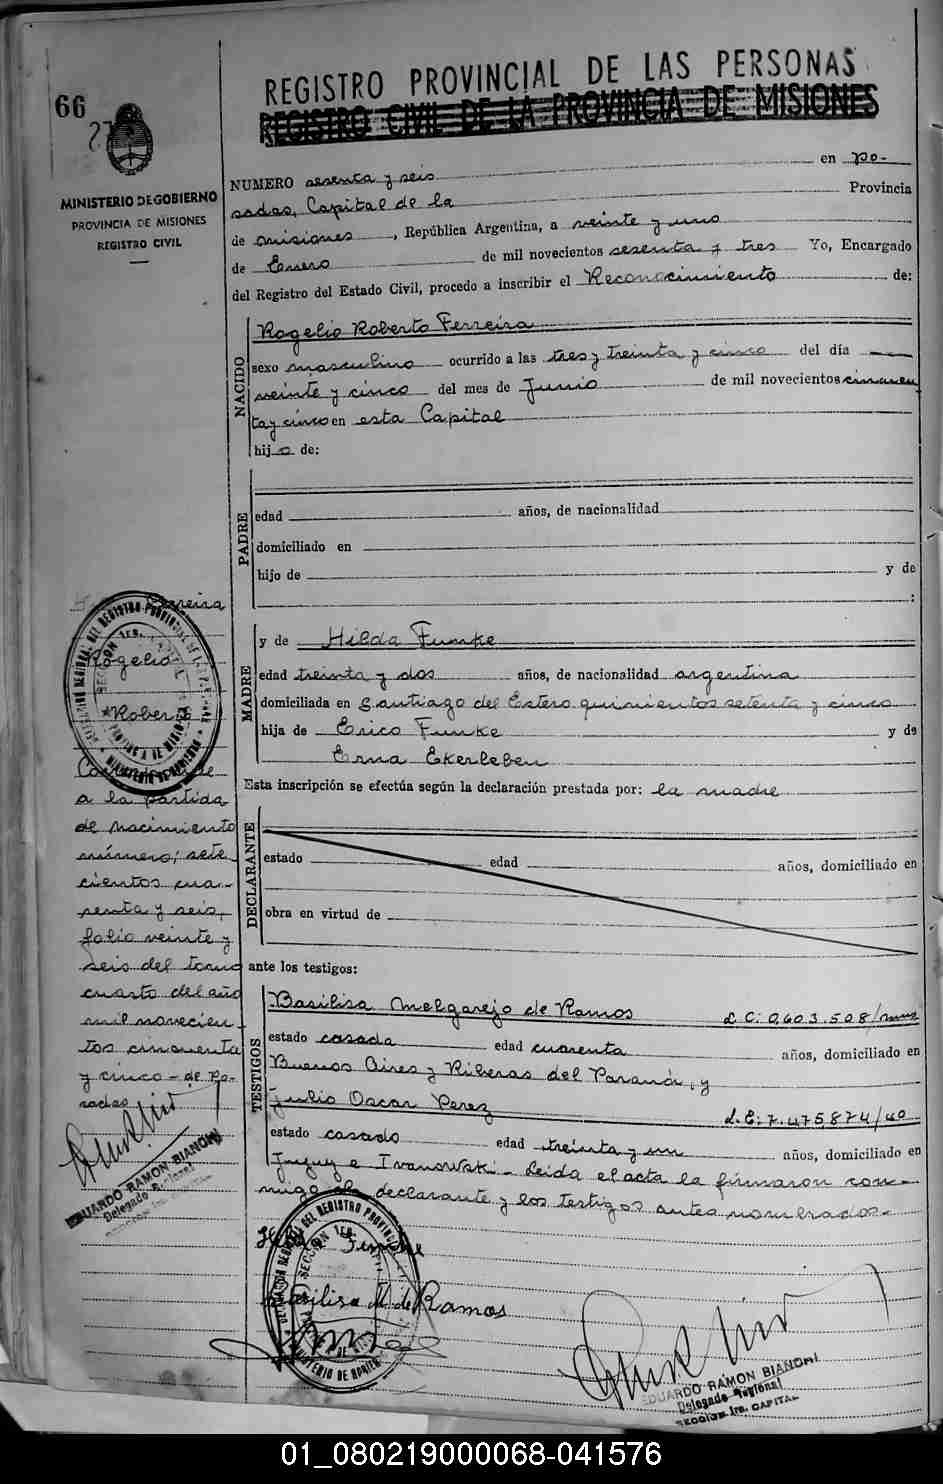 REGISTRO PROVINCIAL DE LAS PERSONAS
REGISTRO CIVIL DE LA PROVINCIA DE MISIONES
66
27
MINISTERIO DE GOBIERNO
PROVINCIA DE MISIONES
REGISTRO CIVIL
NUMERO sesenta y seis en Po-
sadas, Capital de la Provincia
de Misiones, República Argentina, a veinte y uno
de Enero de mil novecientos sesenta y tres Yo, Encargado
del Registro del Estado Civil, procedo a inscribir el Reconocimiento de:
NACIDO
Rogelio Roberto Ferreira
sexo masculino ocurrido a las tres y treinta y cinco del día
veinte y cinco del mes de Junio de mil novecientos cincuen
ta y cinco en esta Capital
hijo de:
PADRE
edad años, de nacionalidad
domiciliado en
hijo de y de
:
MADRE
y de Hilda Funke
edad treinta y dos años, de nacionalidad argentina
domiciliada en Santiago del Estero quinientos setenta y cinco
hija de Erico Funke y de
Erna Ekerleben
Esta inscripción se efectúa según la declaración prestada por: la madre
DECLARANTE
estado edad años, domiciliado en
obra en virtud de
ante los testigos:
TESTIGOS
Basilisa Melgarejo de Ramos L C: 0.603.508/mns
estado casada edad cuarenta años, domiciliado en
Buenos Aires y Riberas del Paraná, y
Julio Oscar Perez L.E: 7.475874/40
estado casado edad treinta y un años, domiciliado en
Jujuy e Ivanowski - Leida el acta la firmaron con-
migo la declarante y los testigos antes nombrados.-
Funke
Basilisa M. de Ramos
EDUARDO RAMON BIANCHI
Delegado Regional
SECCION 1ra. CAPITAL
Ferreira
Rogelio
Roberto
Corresponde
a la partida
de nacimiento
número; sete
cientos cua-
renta y seis,
folio veinte y
seis del tomo
cuarto del año
mil novecien
tos cincuenta
y cinco - de Po-
sadas
EDUARDO RAMON BIANCHI
Delegado Regional
SECCION 1ra. CAPITAL
01_080219000068-041576